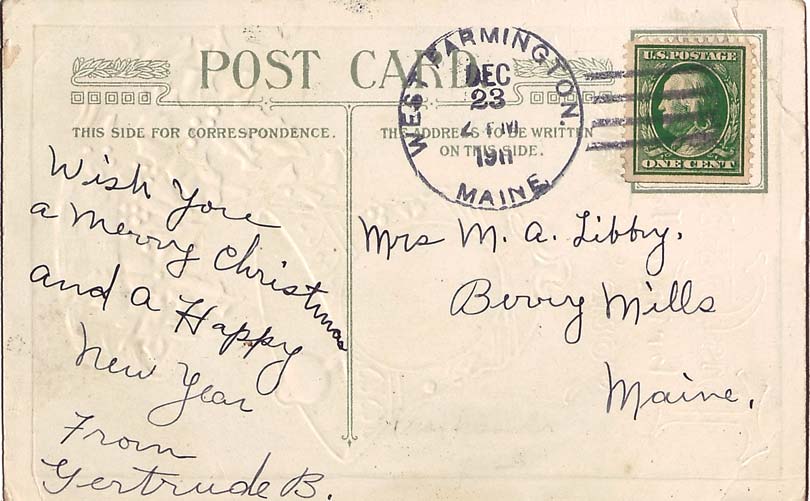 POST CARD
THIS SIDE FOR CORRESPONDENCE.
THE ADDRESS TO BE WRITTEN
ON THIS SIDE.
WEST FARMINGTON.
DEC
23
PM
1911
MAINE
U.S. POSTAGE
ONE CENT
Wish You
a Merry Christmas
and a Happy
New Year
From
Gertrude B.
Mrs M. A. Libby.
Berry Mills
Maine.